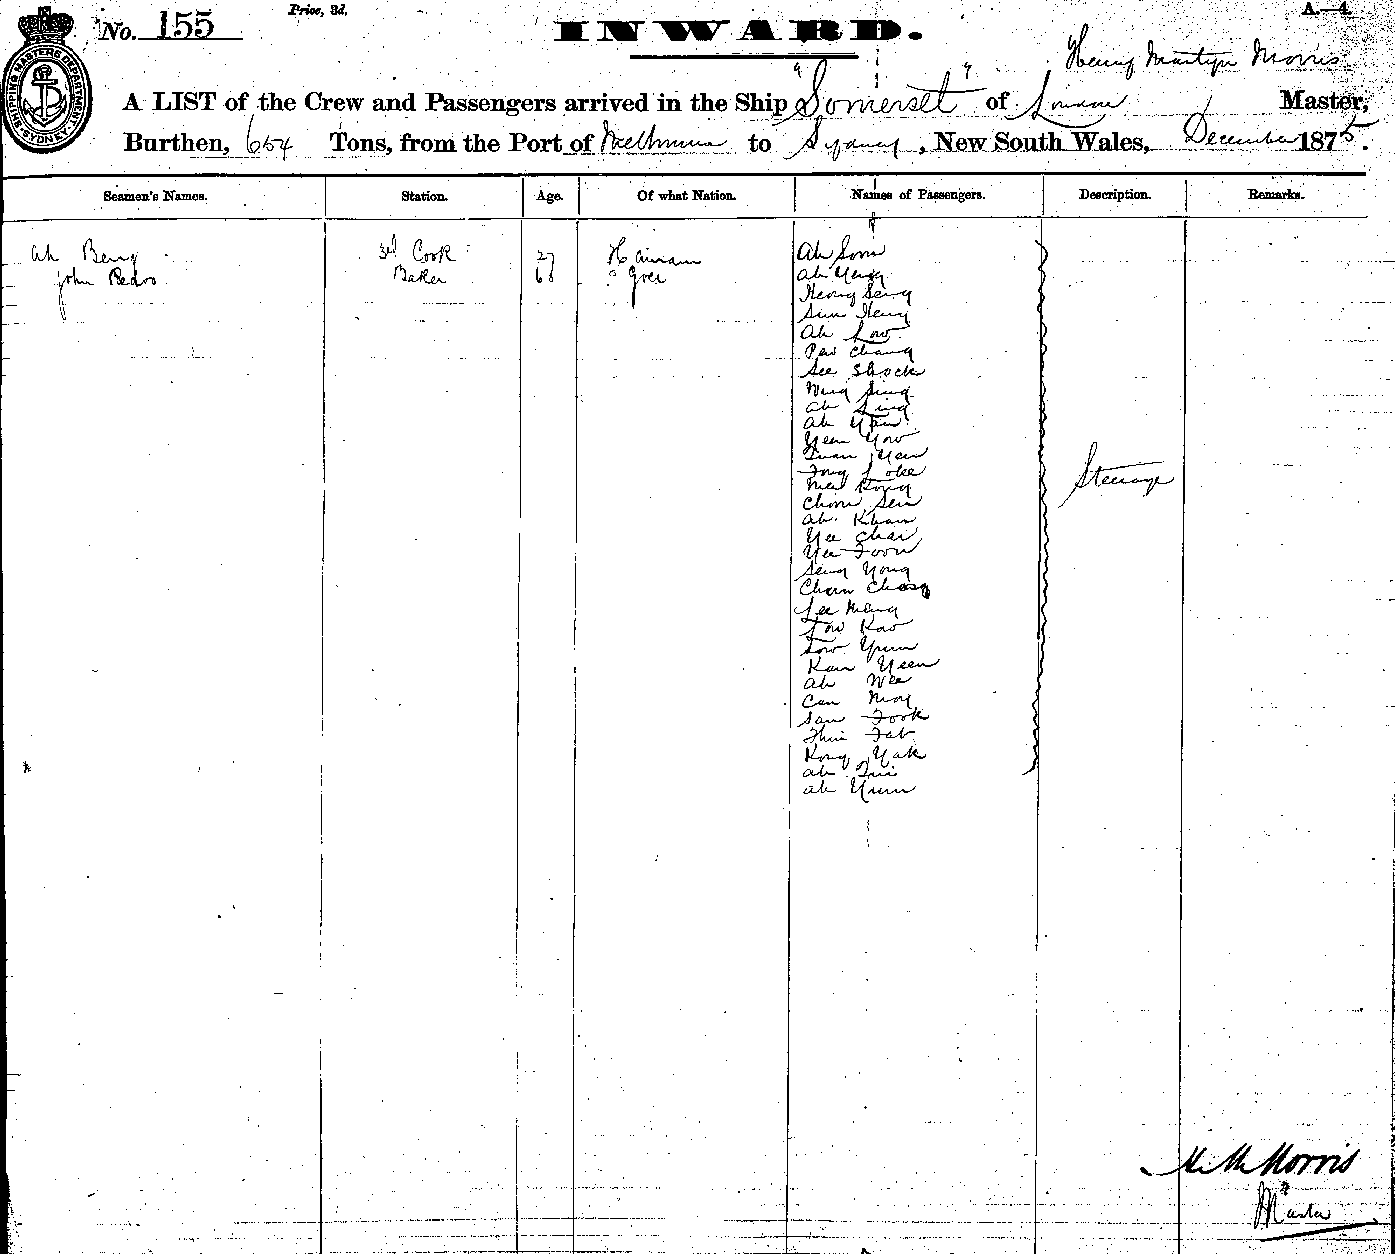 No. 155
Price, 3d.
INWARD.
A.—4.
Henry Martyn Morris
A LIST of the Crew and Passengers arrived in the Ship "Somerset" of London Master,
Burthen, 654 Tons, from the Port of Melbourne to Sydney, New South Wales, December 1875.
SHIPPING MASTERS DEPARTMENT SYDNEY
Seamen's Names. Station. Age. Of what Nation. Names of Passengers. Description. Remarks.
Ah Beng 3rd Cook 27 Hainam Ah Som
John Pedro Baker Goa Ah Yeng
Heong Seng
Sim Heng
Ah Low
Pew Chang
See Shock
Wing Sing
Ah Ling
Ah Yan
Yeen Yow
Tuan Yan
Fong Loke
Mei Kong
Chom Sen
Ah Kham
Yee Chai
Yee Foon
Seng Yong
Chom Chong
Lee Meng
Low Kao
Low Yum
Kan Yeen
Ah Wee
Can Moy
Sam Fook
Thui Fat
Kong Yak
Ah Tui
Ah Yum
Steerage
H. M. Morris
Master